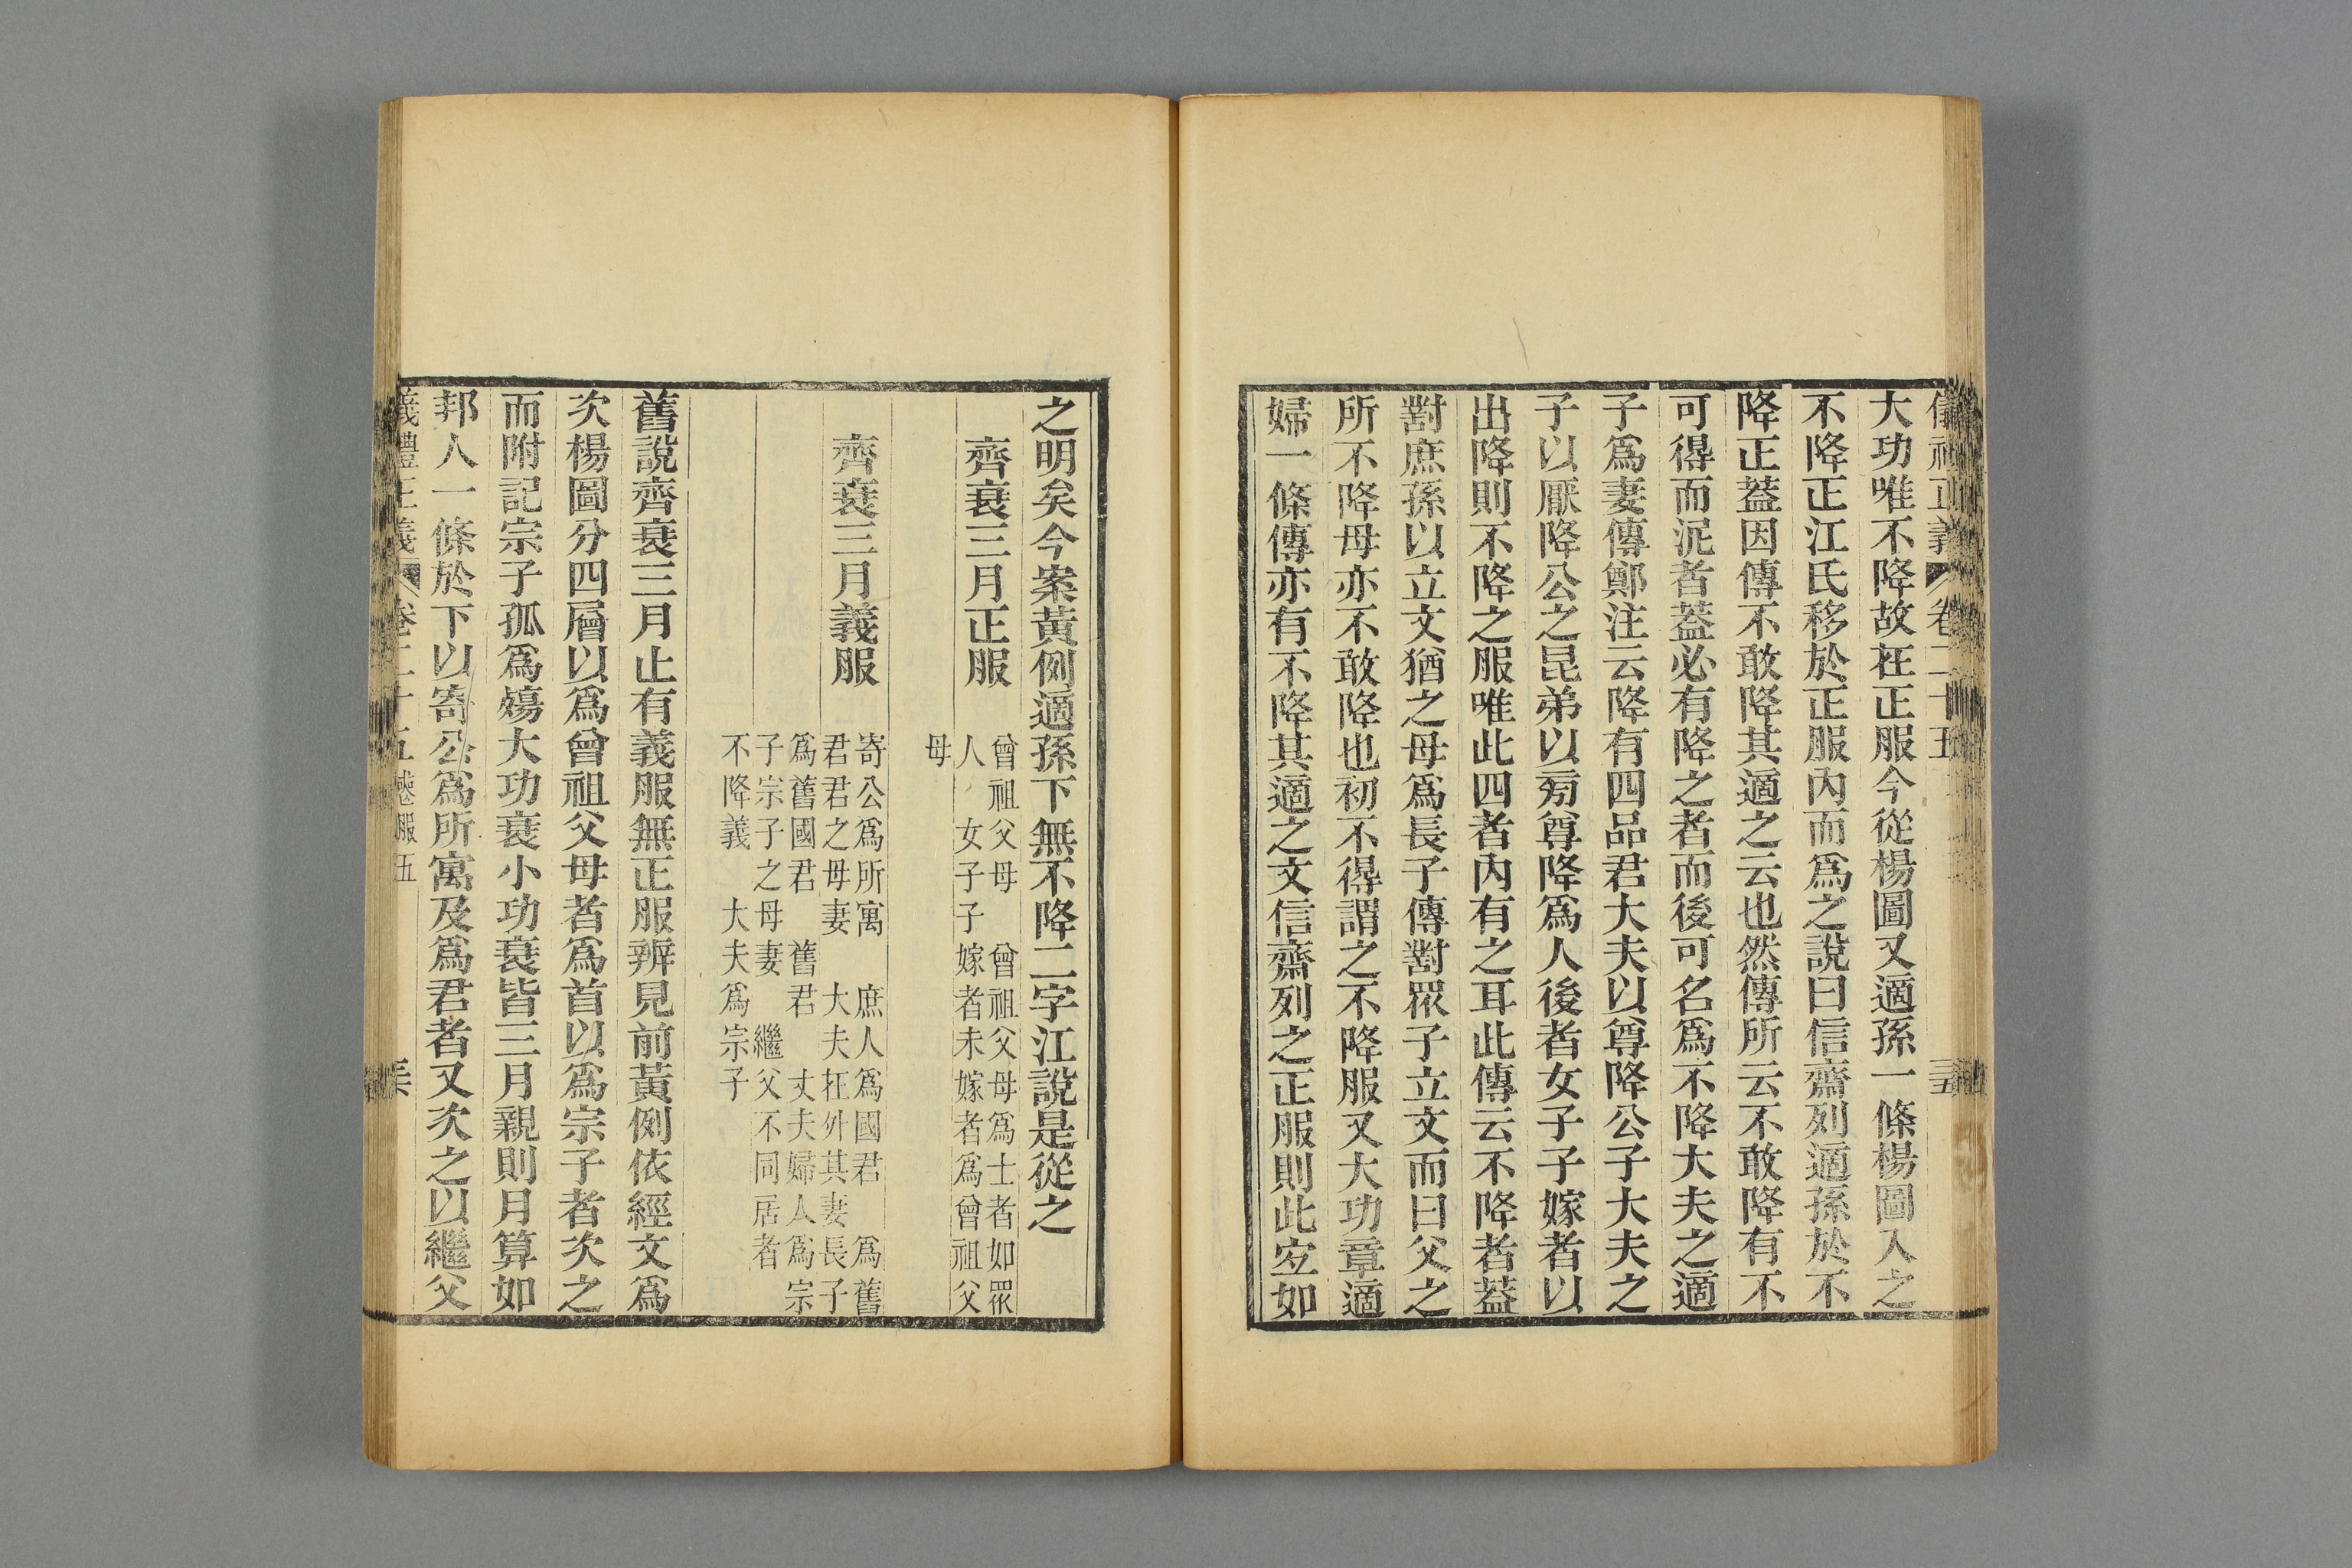 儀禮正義 卷二十五 三五
大功唯不降故在正服今從楊圖又適孫一條楊圖入之
不降正江氏移於正服內而爲之說曰信齋列適孫於不
降正葢因傳不敢降其適之云也然傳所云不敢降有不
可得而泥者葢必有降之者而後可名爲不降大夫之適
子爲妻傳鄭注云降有四品君大夫以尊降公子大夫之
子以厭降公之昆弟以旁尊降爲人後者女子子嫁者以
出降則不降之服唯此四者內有之耳此傳云不降者葢
對庶孫以立文猶之母爲長子傳對眾子立文而曰父之
所不降母亦不敢降也初不得謂之不降服又大功章適
婦一條傳亦有不降其適之文信齋列之正服則此宐如
之明矣今案黃例適孫下無不降二字江說是從之
齊衰三月正服
曾祖父母 曾祖父母爲士者如眾
人 女子子嫁者未嫁者爲曾祖父
母
齊衰三月義服
寄公爲所寓 庶人爲國君 爲舊
君君之母妻 大夫在外其妻長子
爲舊國君 舊君 丈夫婦人爲宗
子宗子之母妻 繼父不同居者
不降義 大夫爲宗子
舊說齊衰三月止有義服無正服辨見前黃例依經文爲
次楊圖分四層以爲曾祖父母者爲首以爲宗子者次之
而附記宗子孤爲殤大功衰小功衰皆三月親則月算如
邦人一條於下以寄公爲所寓及爲君者又次之以繼父
義禮正義 卷二十五 喪服五